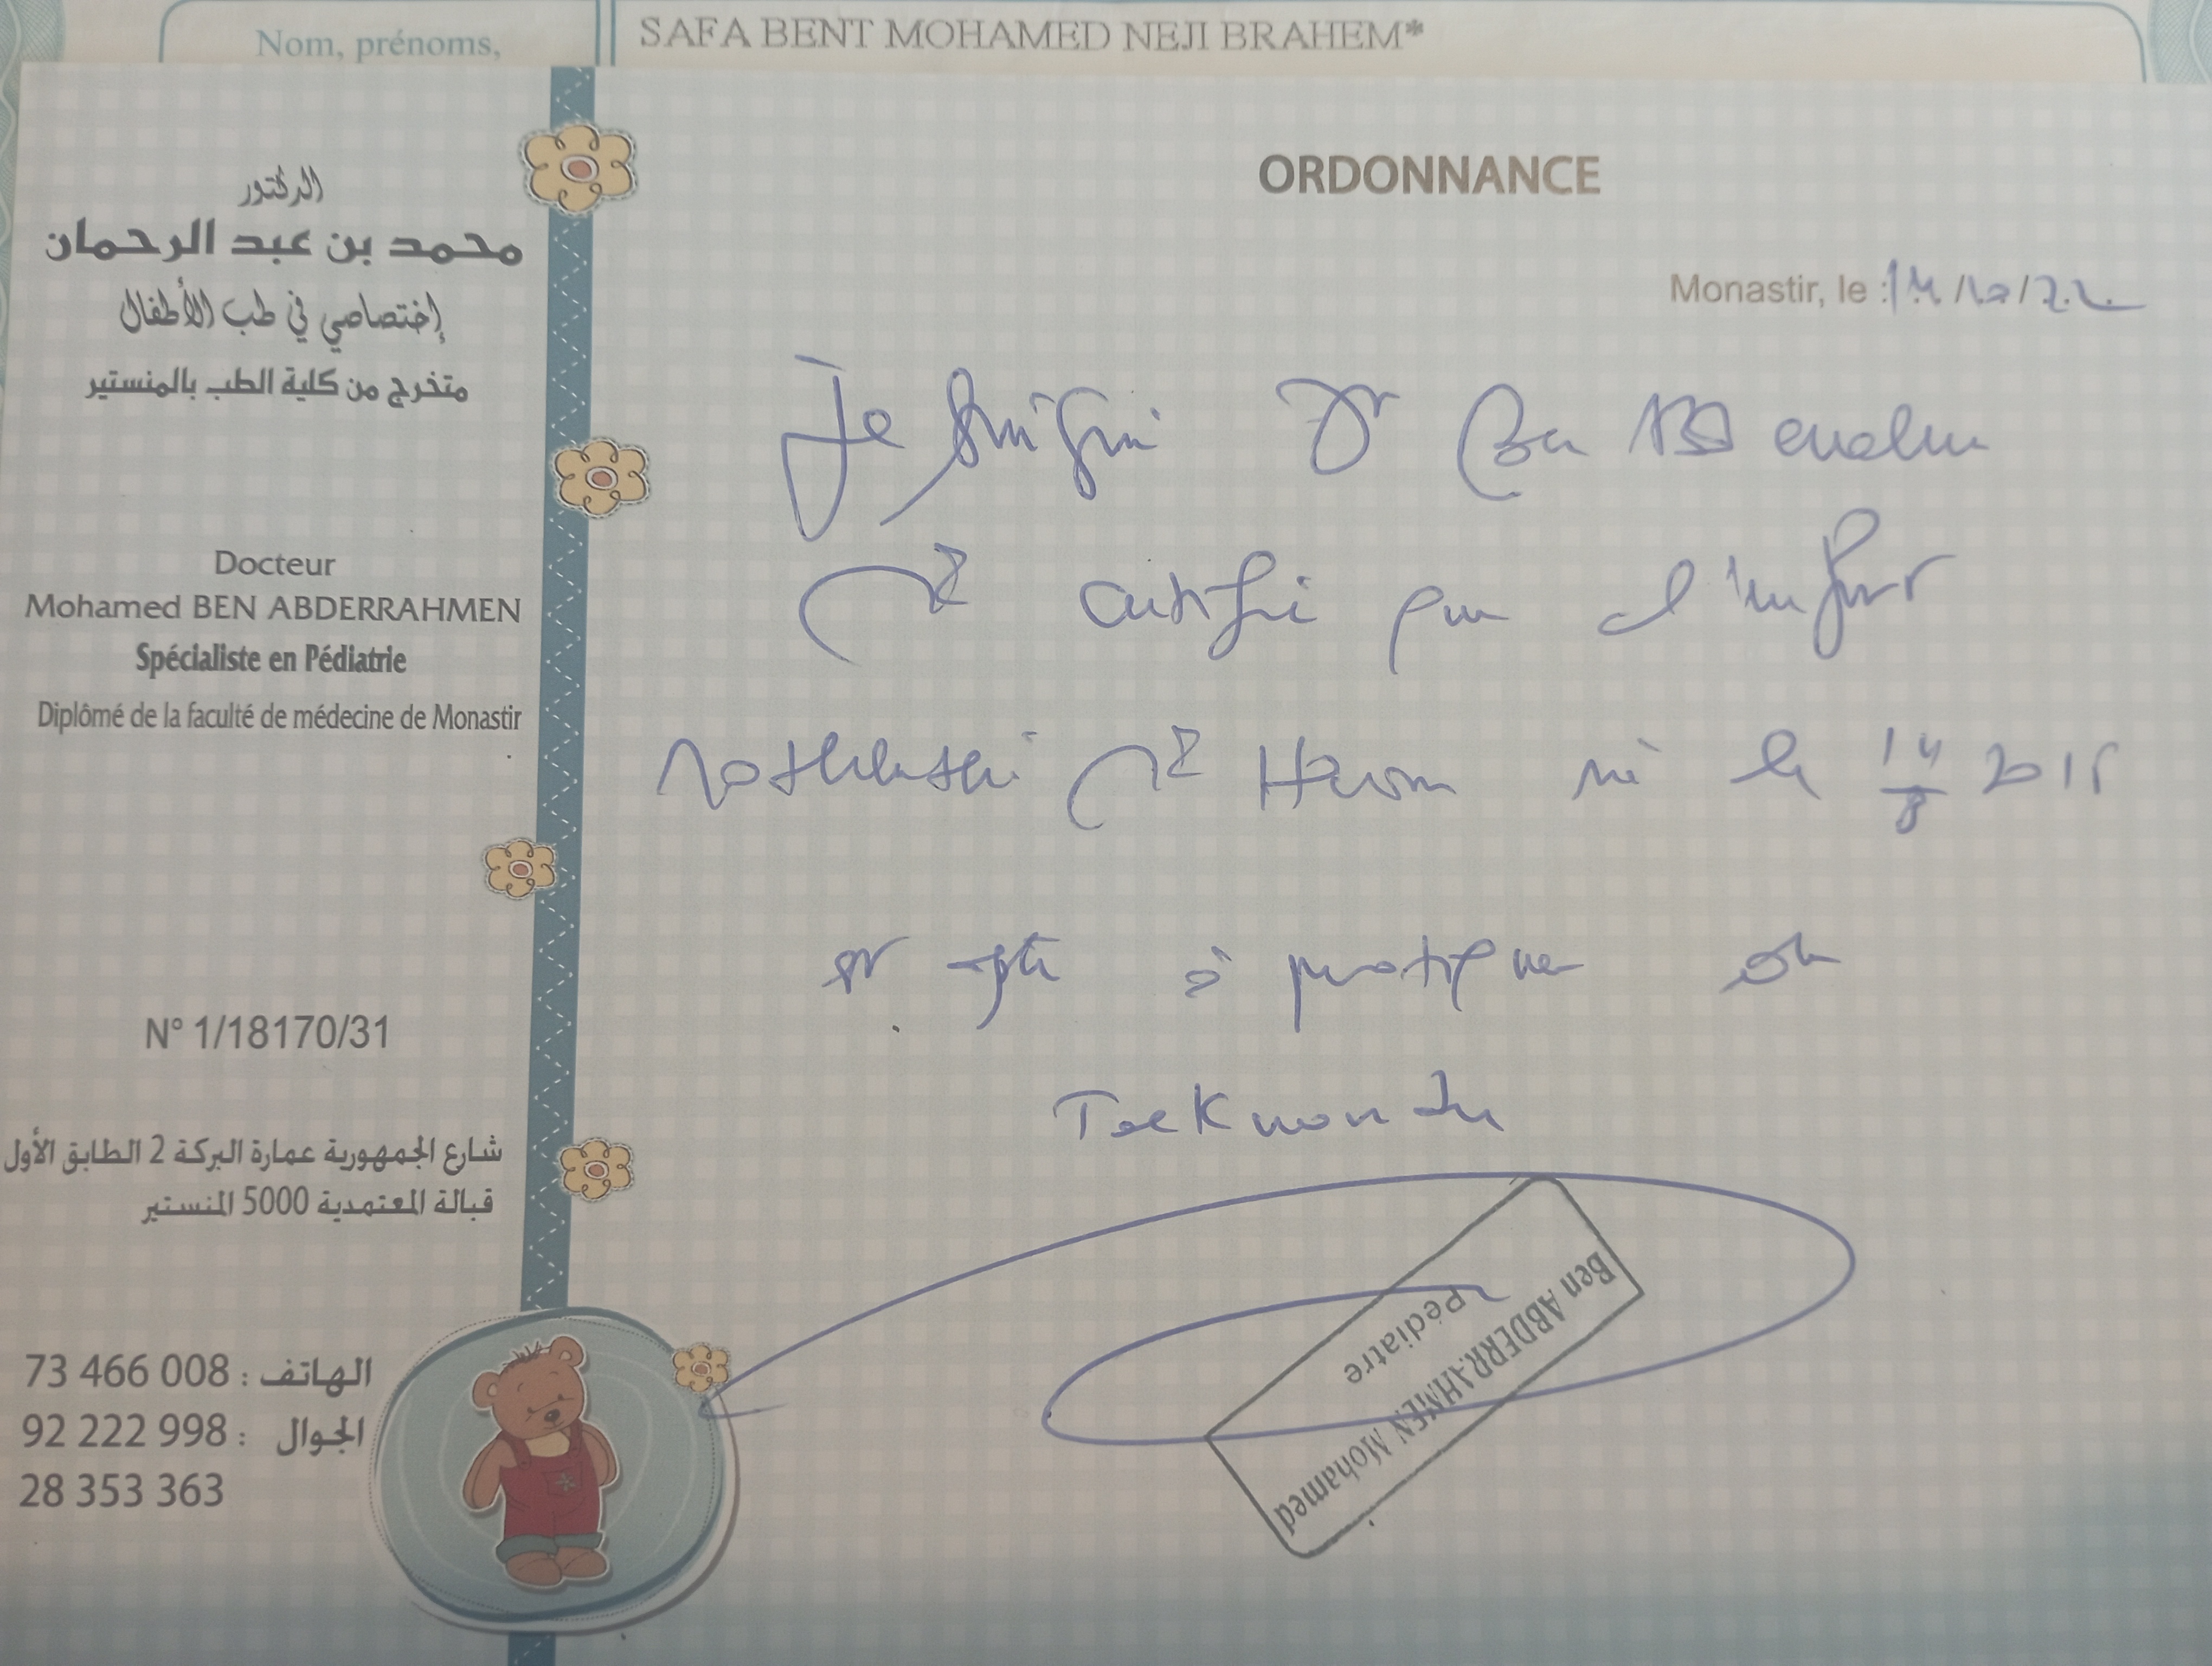 Nom, prénoms,
SAFA BENT MOHAMED NEJI BRAHEM*
الدكتور
محمد بن عبد الرحمان
إختصاصي في طب الأطفال
متخرج من كلية الطب بالمنستير
Docteur
Mohamed BEN ABDERRAHMEN
Spécialiste en Pédiatrie
Diplômé de la faculté de médecine de Monastir
N° 1/18170/31
شارع الجمهورية عمارة البركة 2 الطابق الأول
قبالة المعتمدية 5000 المنستير
الهاتف : 73 466 008
الجوال : 92 222 998
28 353 363
ORDONNANCE
Monastir, le :
Je Dr Ben
certifie que l'enfant
né le 14/8
est apte à pratiquer
Taekwondo
Ben ABDERRAHMEN Mohamed
Pédiatre